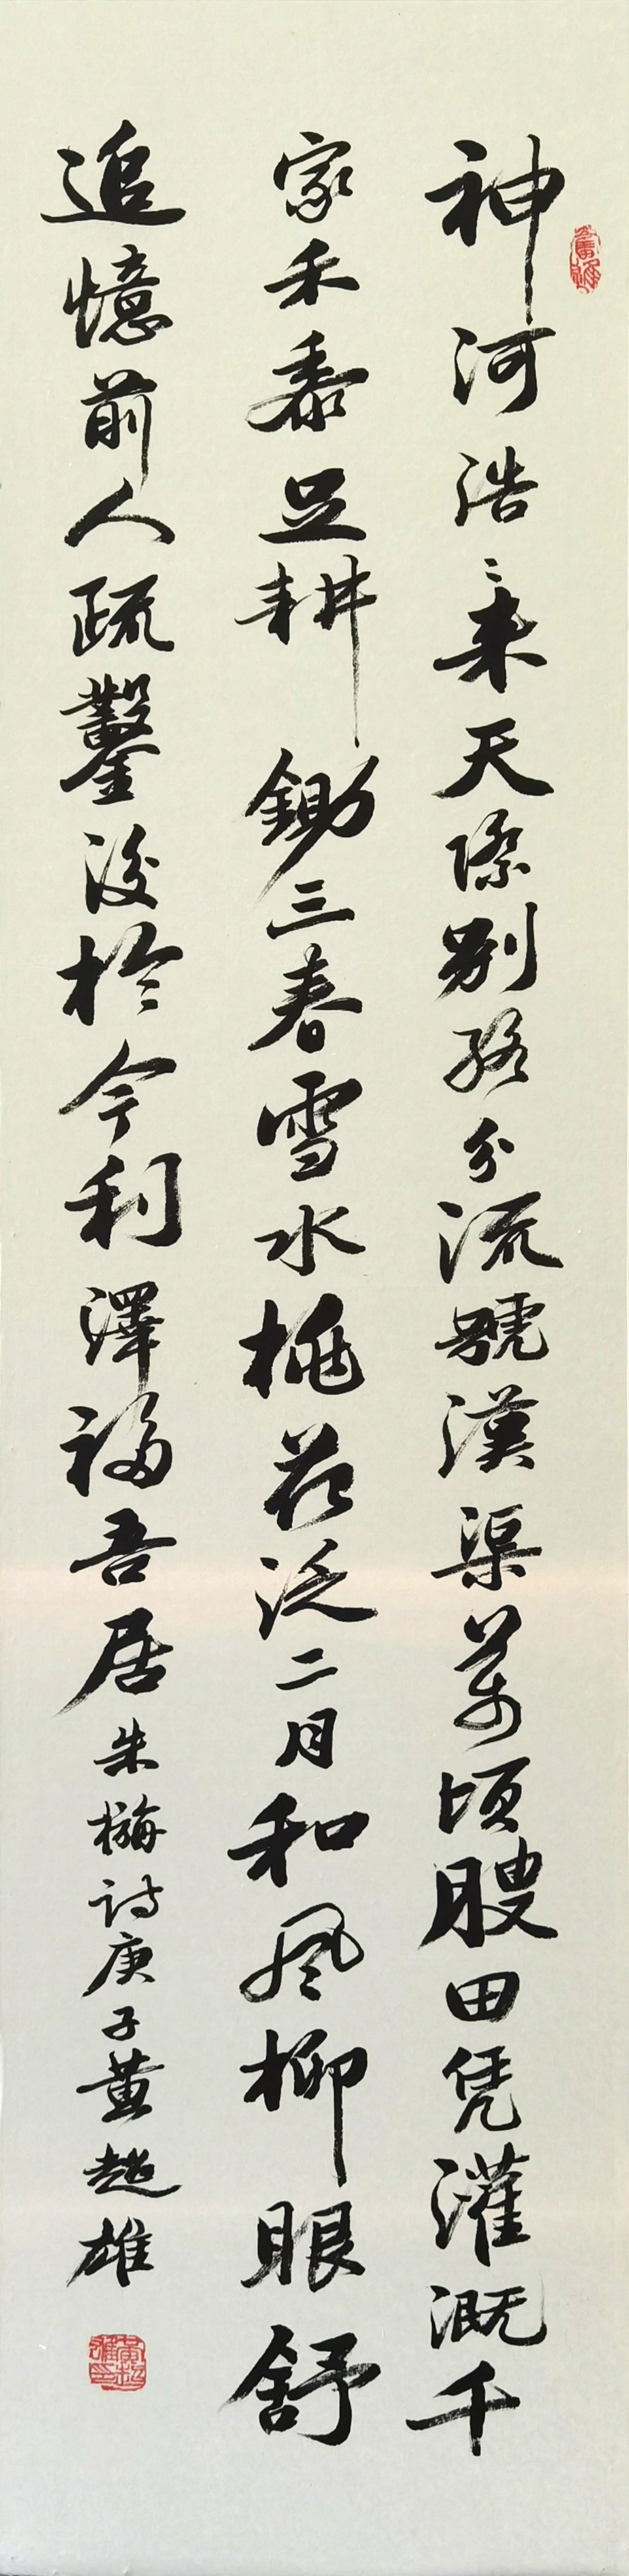 神河浩〻来天際别路分流號漢渠萬頃腴田凭灌溉千
家禾黍足耕鋤三春雪水桃花泛二月和風柳眼舒
追憶前人疏鑿後於今利澤福吾居朱栴詩庚子黄超雄